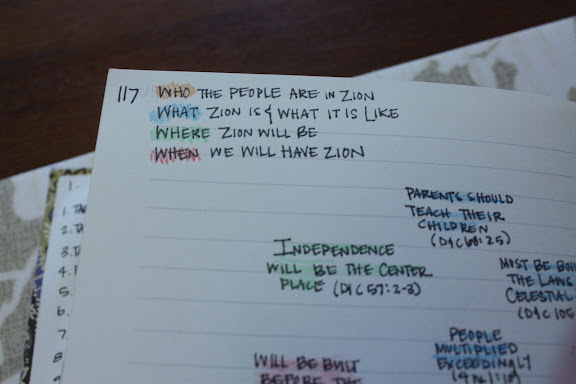 117 WHO THE PEOPLE ARE IN ZION
WHAT ZION IS & WHAT IT IS LIKE
WHERE ZION WILL BE
WHEN WE WILL HAVE ZION
PARENTS SHOULD
TEACH THEIR
CHILDREN
(D&C 68:25)
INDEPENDENCE
WILL BE THE CENTER
PLACE (D&C 57:2-3)
MUST BE
THE LAWS
CELESTIAL
(D&C 105
PEOPLE
MULTIPLIED
EXCEEDINGLY
WILL BE BUILT
BEFORE THE
1.
1.
2.
3.
4.
5.
6.
7.
8
9